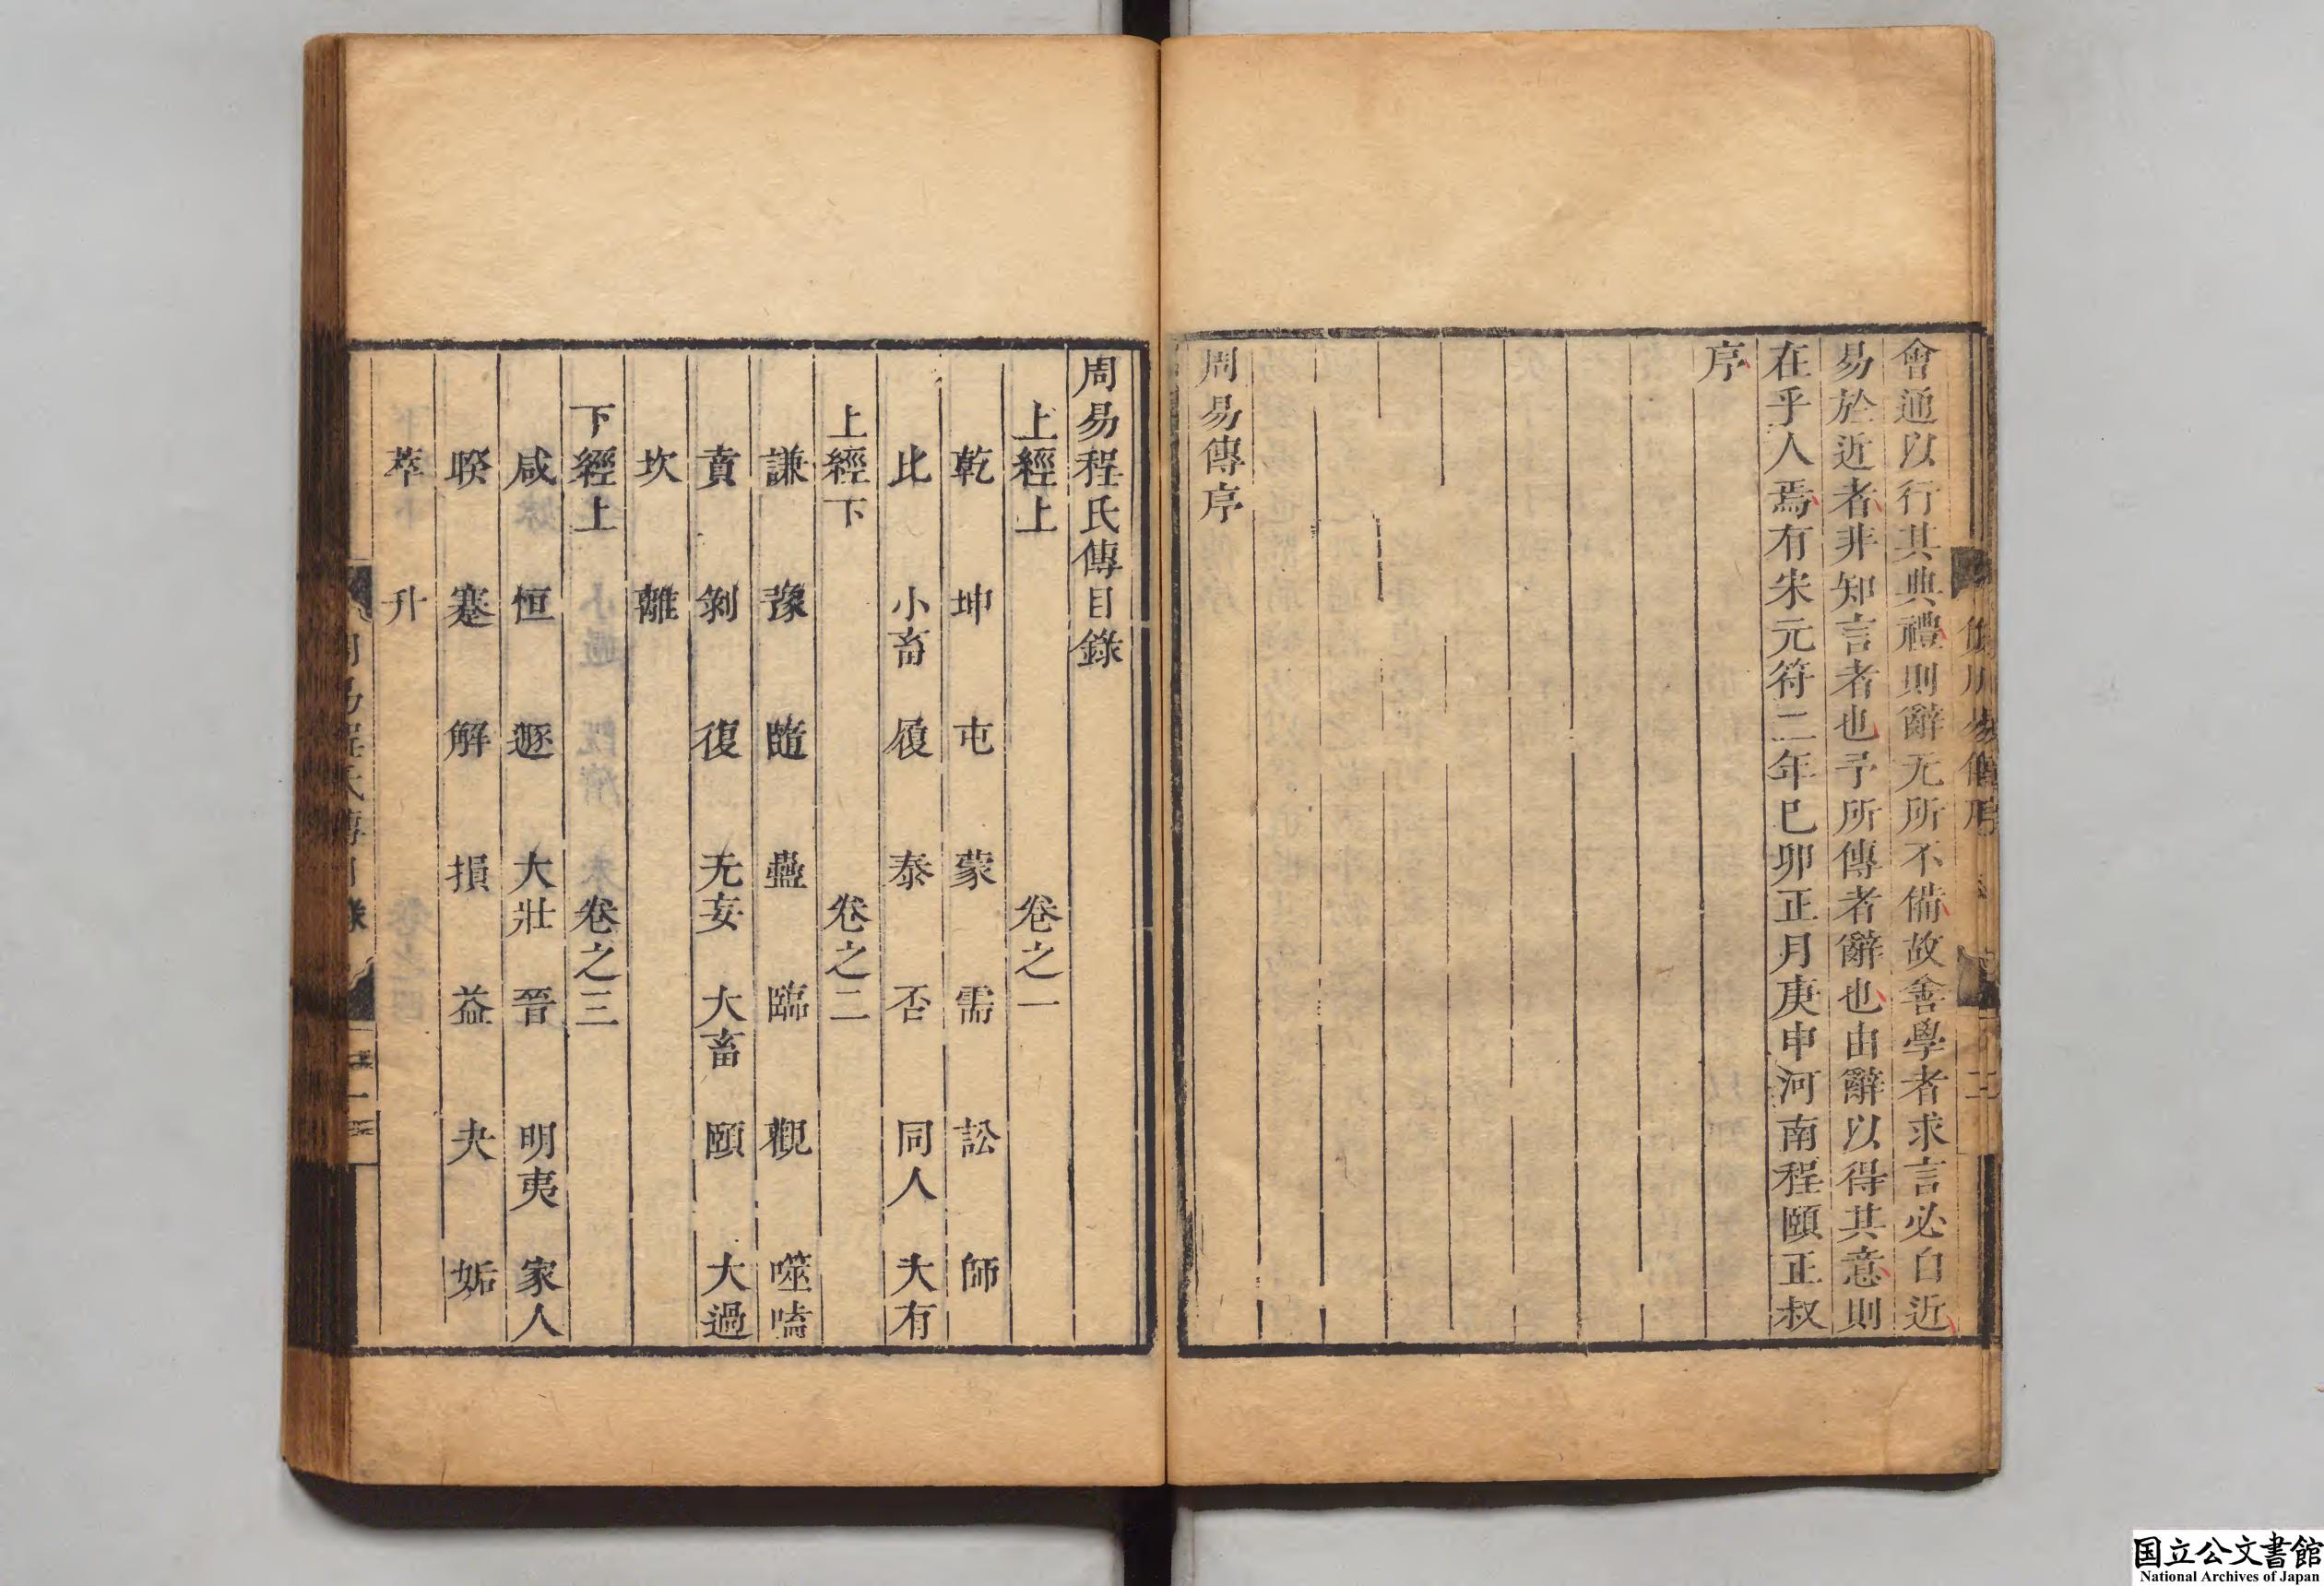 會通以行其典禮則辭无所不備故善學者求言必自近
易於近者非知言者也予所傳者辭也由辭以得其意則
在乎人焉有宋元符二年巳卯正月庚申河南程頤正叔
序
周易傳序
周易程氏傳目錄
上經上 卷之一
乾 坤 屯 蒙 需 訟 師
比 小畜 履 泰 否 同人 大有
上經下 卷之二
謙 豫 隨 蠱 臨 觀 噬嗑
賁 剝 復 无妄 大畜 頤 大過
坎 離
下經上 卷之三
咸 恒 遯 大壯 晉 明夷 家人
睽 蹇 解 損 益 夬 姤
萃 升
国立公文書館
National Archives of Japan